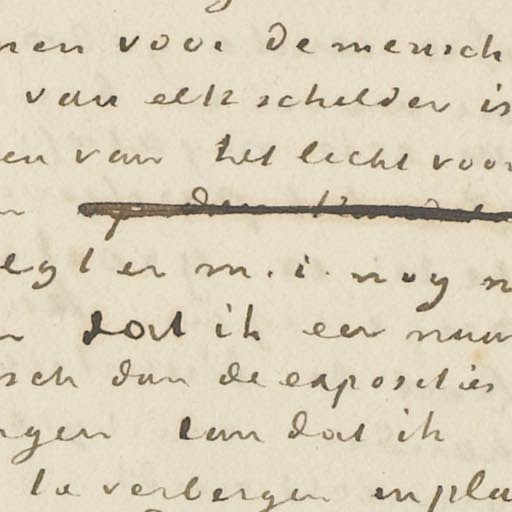 nen voor de mensch
van elk schilder is
en van het licht voor
egt er m.i. nog n
dat ik een naar
sch dan de exposities
ngen kan dat ik
te verbergen en pla